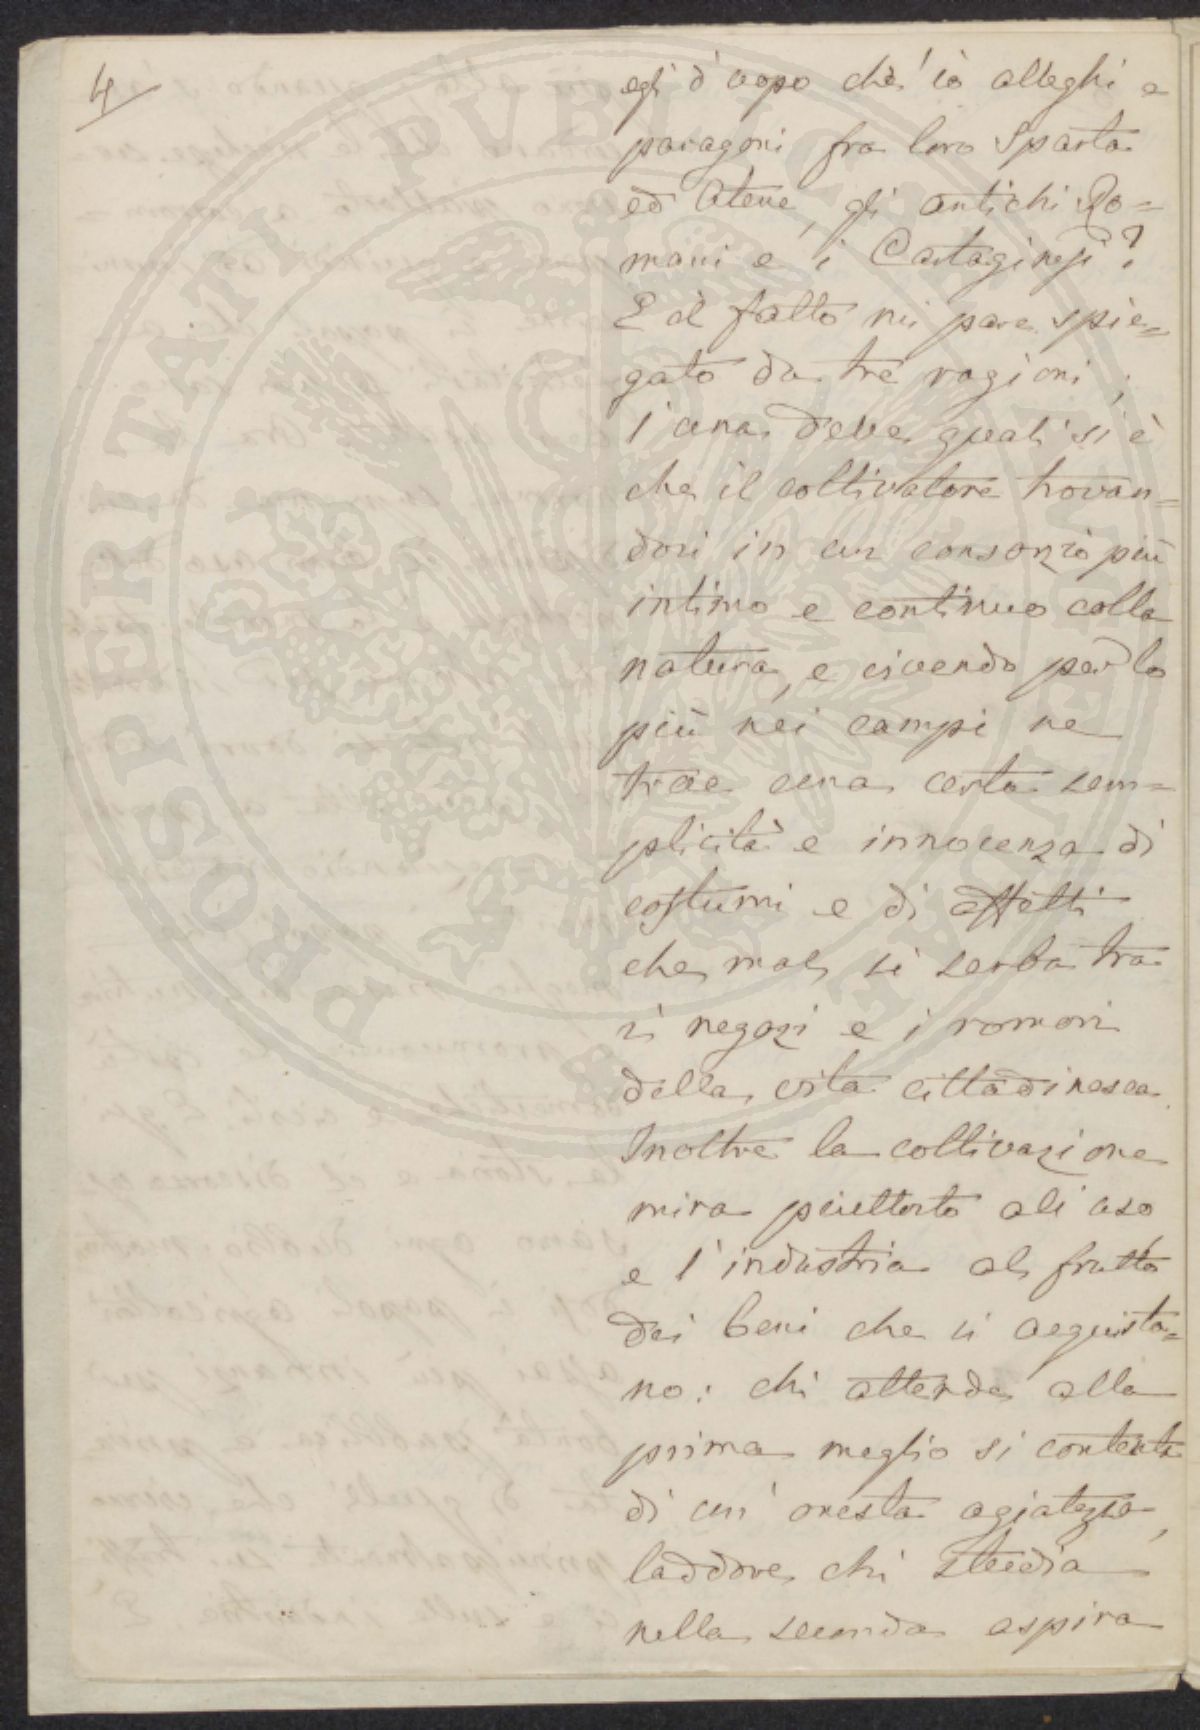 4
egli d'uopo ch'io alleghi e
paragoni fra loro Sparta
ed Atene, gli antichi Ro=
mani e i Cartaginesi?
E il fatto mi pare spie=
gato da tre ragioni;
l'una delle quali si è
che il coltivatore trovan=
dosi in un consorzio più
intimo e continuo colla
natura, e vivendo per lo
più nei campi ne
trae una certa sem=
plicità e innocenza di
costumi e di affetti
che mal si serba tra
i negozi e i romori
della vita cittadinesca.
Inoltre la coltivazione
mira piuttosto all'uso
e l'industria al frutto
dei beni che si acquista=
no: chi attende alla
prima meglio si contenta
di un'onesta agiatezza,
laddove chi studia
nella seconda aspira
PROSPERITATI PVBLICAE AVGENDAE